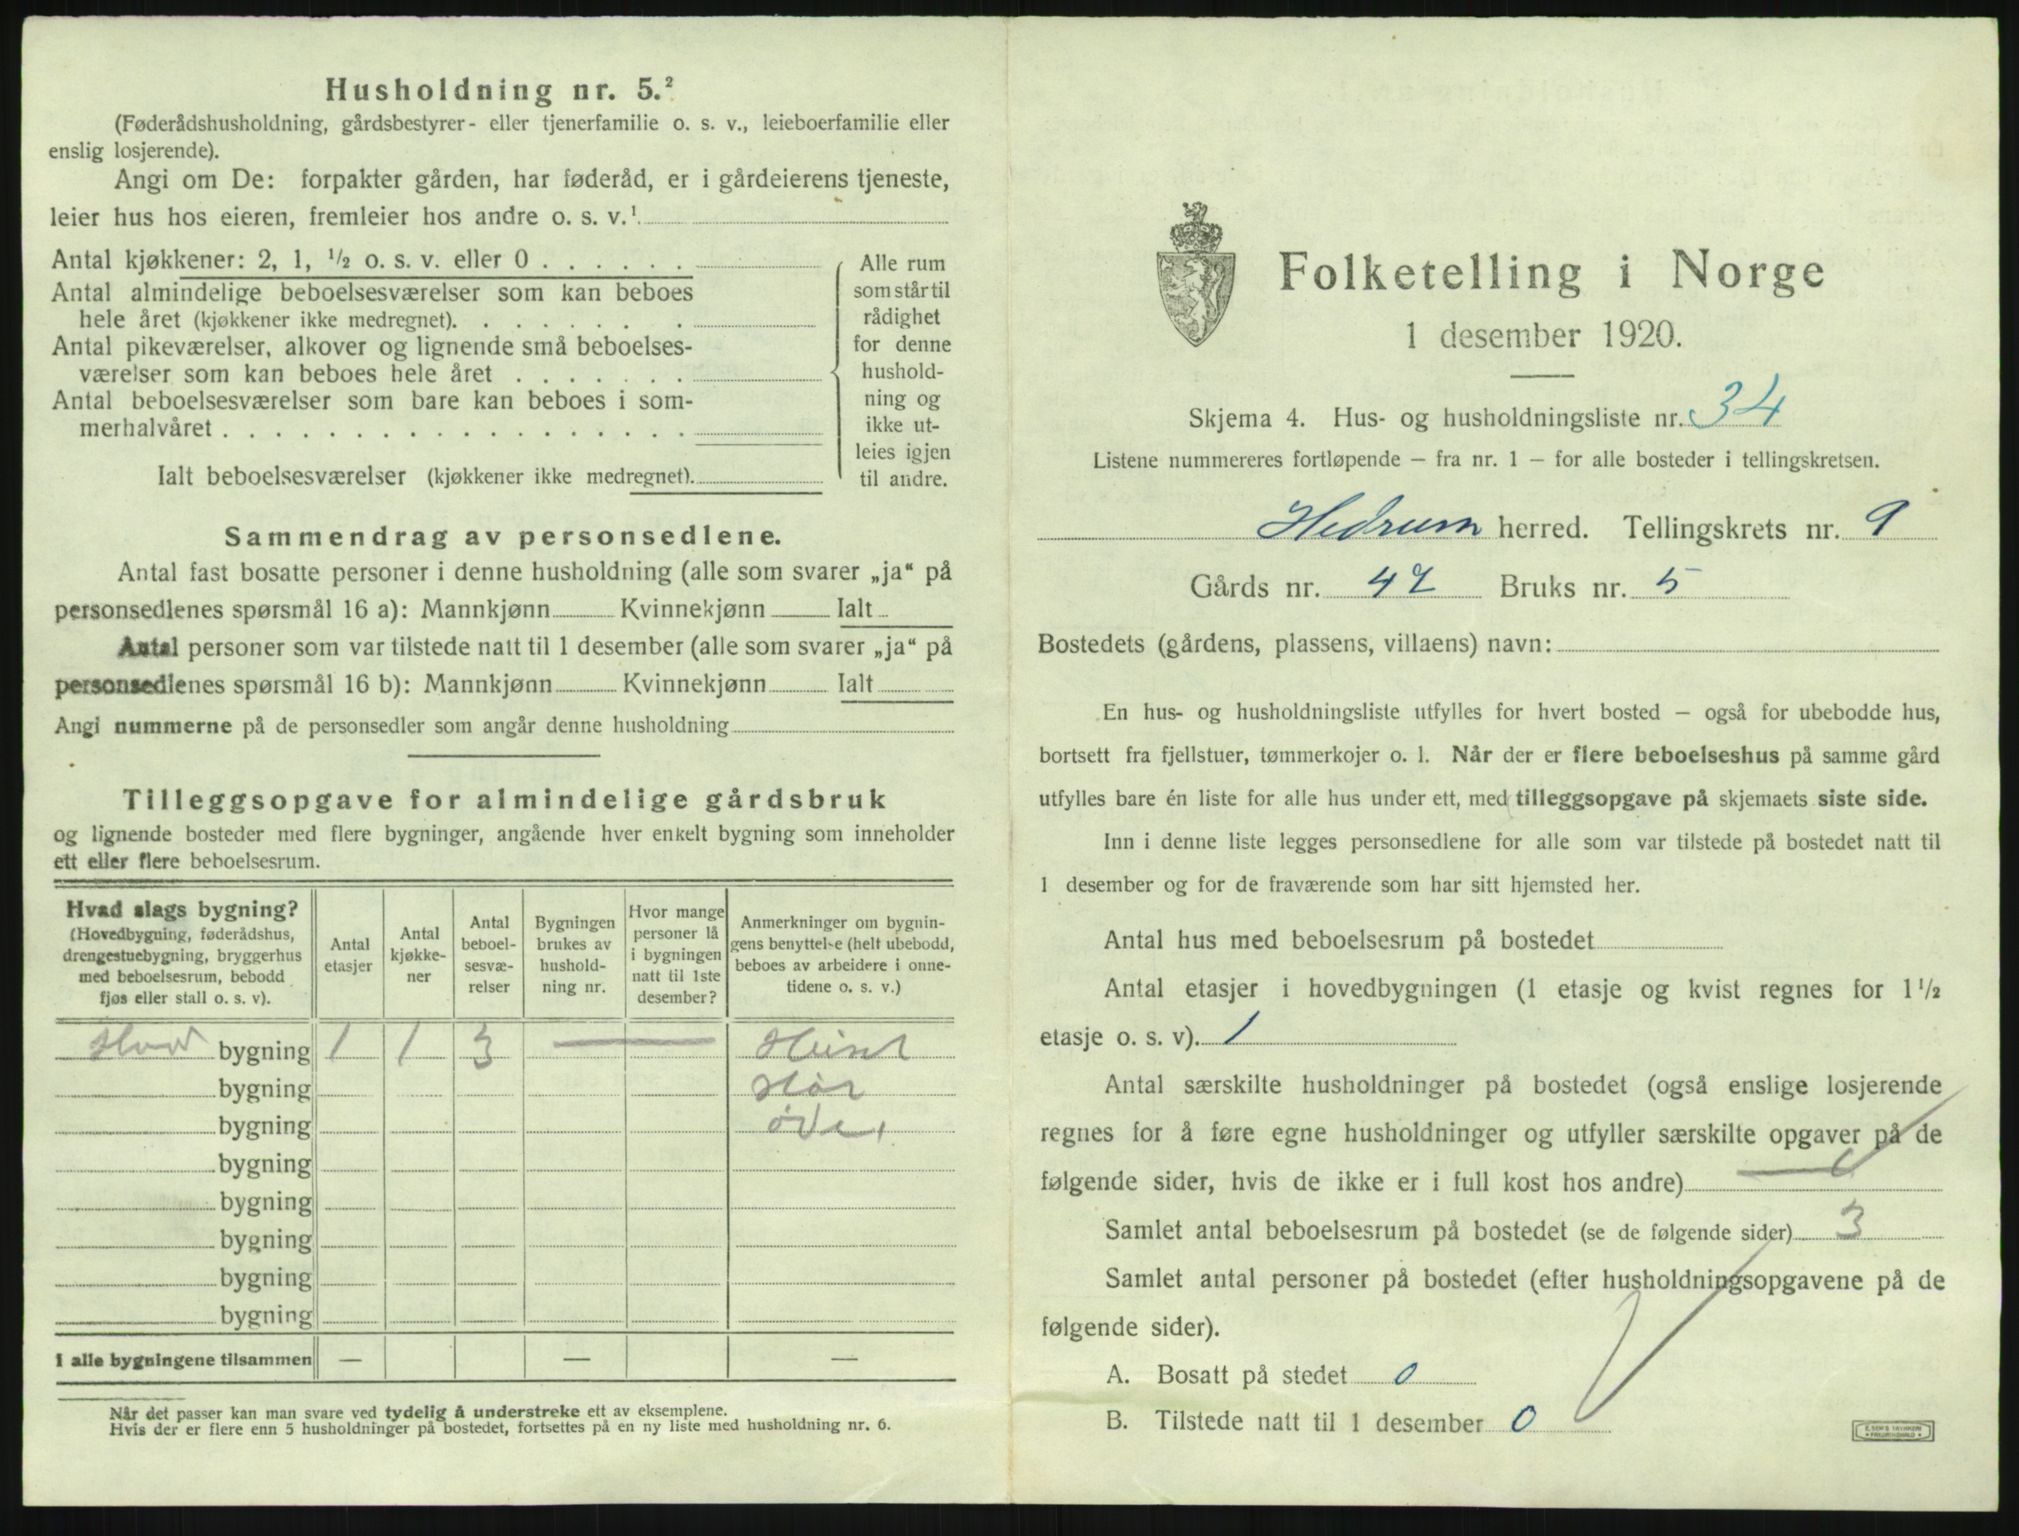 Husholdning nr. 5.²
(Føderådshusholdning, gårdsbestyrer- eller tjenerfamilie o. s. v., leieboerfamilie eller
enslig losjerende).
Angi om De: forpakter gården, har føderåd, er i gårdeierens tjeneste,
leier hus hos eieren, fremleier hos andre o. s. v.¹
Antal kjøkkener: 2, 1, ½ o. s. v. eller 0 . . . . . .
Antal almindelige beboelsesværelser som kan beboes
hele året (kjøkkener ikke medregnet). . . . . . . . .
Antal pikeværelser, alkover og lignende små beboelses-
værelser som kan beboes hele året . . . . . . .
Antal beboelsesværelser som bare kan beboes i som-
merhalvåret . . . . . . . . . . . . . . . . . .
Ialt beboelsesværelser (kjøkkener ikke medregnet).
Alle rum
som står til
rådighet
for denne
hushold-
ning og
ikke ut-
leies igjen
til andre.
Sammendrag av personsedlene.
Antal fast bosatte personer i denne husholdning (alle som svarer „ja“ på
personsedlenes spørsmål 16 a): Mannkjønn Kvinnekjønn Ialt
Antal personer som var tilstede natt til 1 desember (alle som svarer „ja“ på
personsedlenes spørsmål 16 b): Mannkjønn Kvinnekjønn Ialt
Angi nummerne på de personsedler som angår denne husholdning
Tilleggsopgave for almindelige gårdsbruk
og lignende bosteder med flere bygninger, angående hver enkelt bygning som inneholder
ett eller flere beboelsesrum.
Hvad slags bygning?
(Hovedbygning, føderådshus,
drengestuebygning, bryggerhus
med beboelsesrum, bebodd
fjøs eller stall o. s. v).
Antal
etasjer
Antal
kjøkke-
ner
Antal
beboel-
sesvæ-
relser
Bygningen
brukes av
hushold-
ning nr.
Hvor mange
personer lå
i bygningen
natt til 1ste
desember?
Anmerkninger om bygnin-
gens benyttelse (helt ubebodd,
beboes av arbeidere i onne-
tidene o. s. v.)
Hoved bygning 1 1 3 — Huset
bygning står
bygning øde.
bygning
bygning
bygning
bygning
bygning
I alle bygningene tilsammen — — —
Når det passer kan man svare ved tydelig å understreke ett av eksemplene.
Hvis der er flere enn 5 husholdninger på bostedet, fortsettes på en ny liste med husholdning nr. 6.
Folketelling i Norge
1 desember 1920.
Skjema 4. Hus- og husholdningsliste nr. 34
Listene nummereres fortløpende — fra nr. 1 — for alle bosteder i tellingskretsen.
Hedrum herred. Tellingskrets nr. 9
Gårds nr. 42 Bruks nr. 5
Bostedets (gårdens, plassens, villaens) navn:
En hus- og husholdningsliste utfylles for hvert bosted — også for ubebodde hus,
bortsett fra fjellstuer, tømmerkojer o. l. Når der er flere beboelseshus på samme gård
utfylles bare én liste for alle hus under ett, med tilleggsopgave på skjemaets siste side.
Inn i denne liste legges personsedlene for alle som var tilstede på bostedet natt til
1 desember og for de fraværende som har sitt hjemsted her.
Antal hus med beboelsesrum på bostedet
Antal etasjer i hovedbygningen (1 etasje og kvist regnes for 1½
etasje o. s. v). 1
Antal særskilte husholdninger på bostedet (også enslige losjerende
regnes for å føre egne husholdninger og utfyller særskilte opgaver på de
følgende sider, hvis de ikke er i full kost hos andre) —
Samlet antal beboelsesrum på bostedet (se de følgende sider) 3
Samlet antal personer på bostedet (efter husholdningsopgavene på de
følgende sider).
A. Bosatt på stedet 0
B. Tilstede natt til 1 desember 0